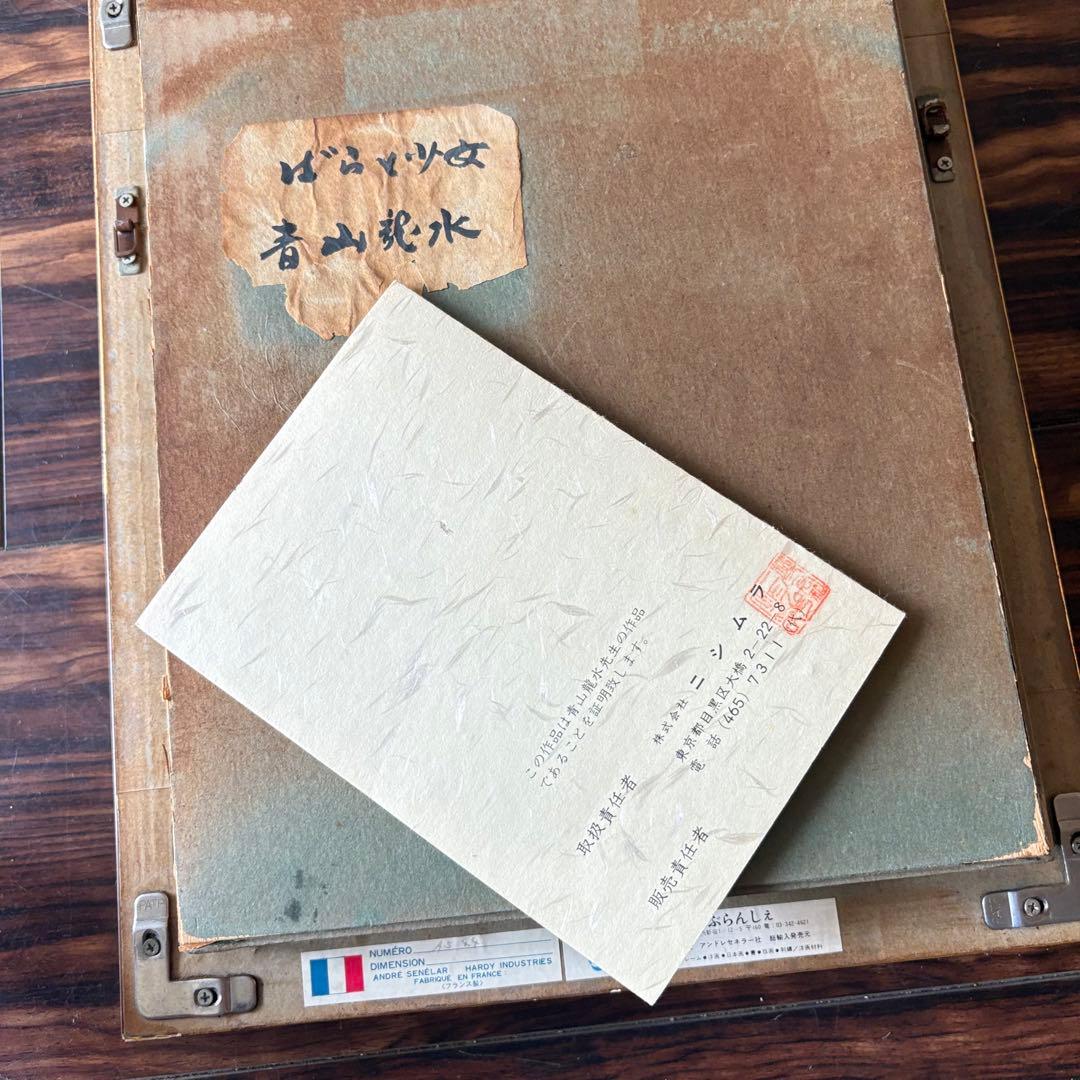 ばらと少女
青山龍水
この作品は青山龍水先生の作品
であることを証明致します。
取扱責任者
株式会社 ニシムラ
東京都目黒区大橋2-22-8
電話(465)7311(代)
販売責任者
PAT.P
NUMÉRO
DIMENSION
ANDRÉ SENÉLAR HARDY INDUSTRIES
FABRIQUE EN FRANCE
(フランス製)
ぶらんしぇ
1-12-5 〒160 ☎:03-342-4621
アンドレセネラー社 総輸入発売元
レーム●洋画●日本画●書●版画●刺繍/洋画材料